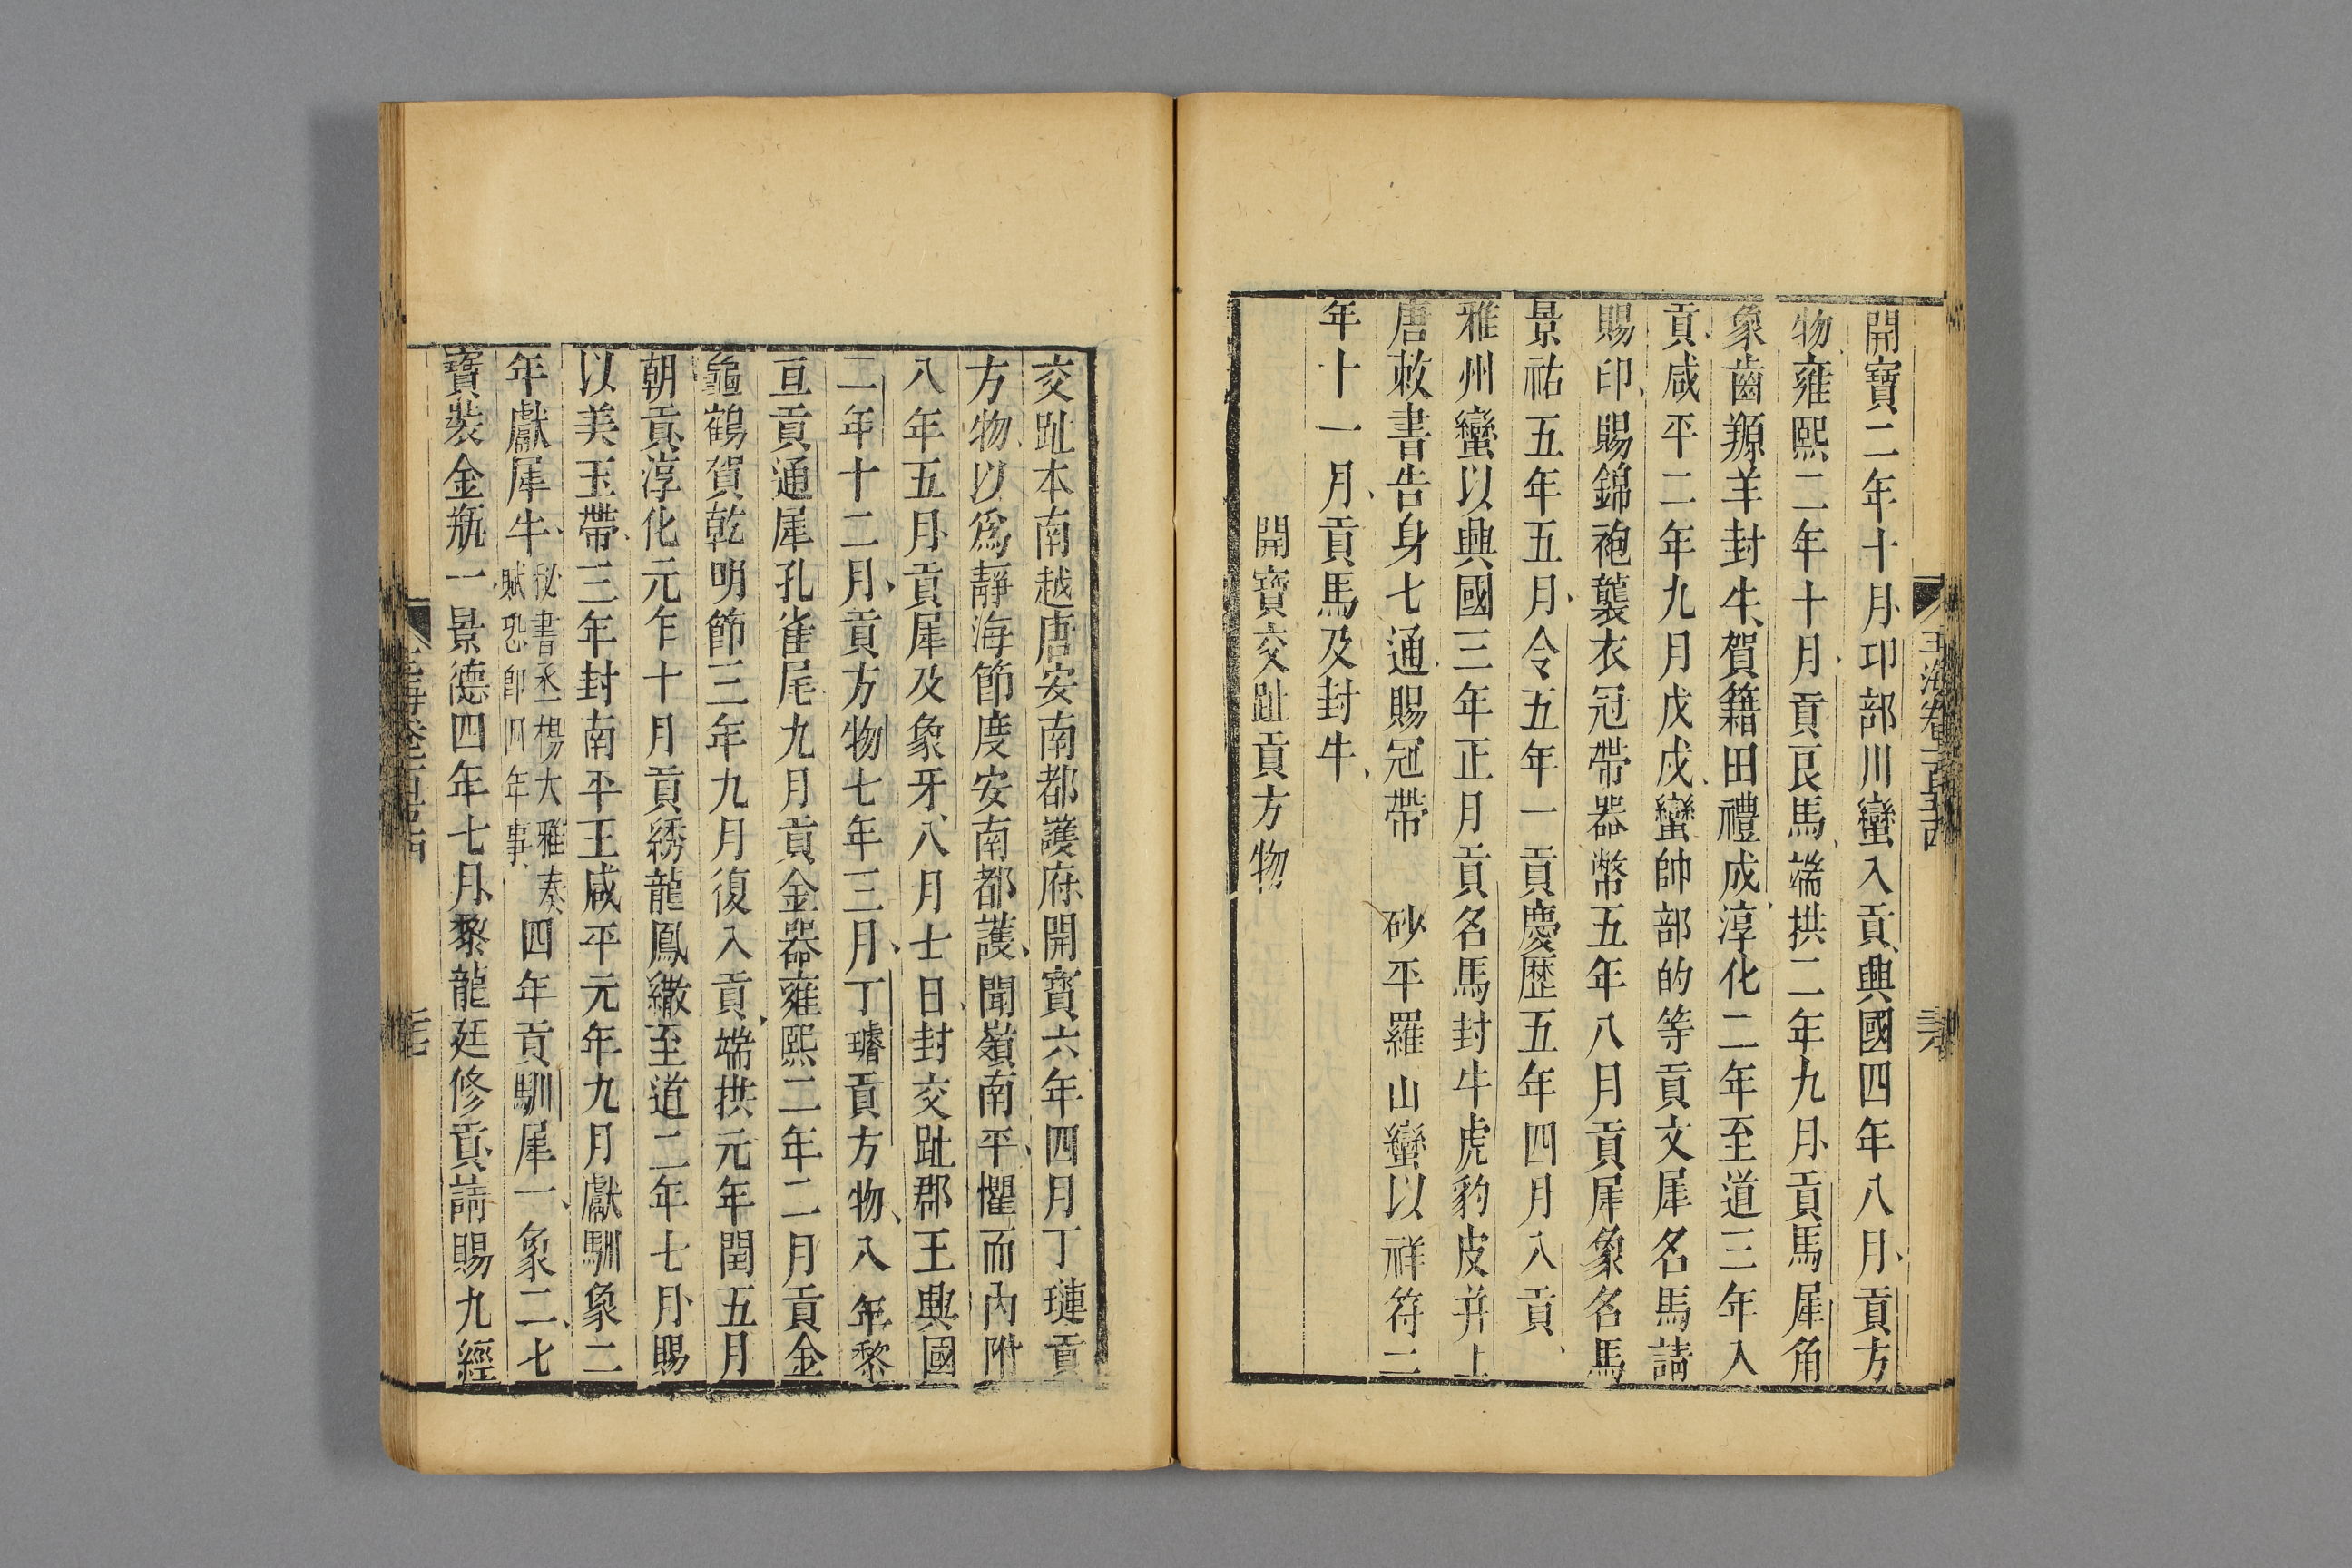 開寶二年十月卭部川蠻入貢興國四年八月貢方
物雍熙二年十月貢良馬端拱二年九月貢馬犀角
象齒羱羊封牛賀籍田禮成淳化二年至道三年入
貢咸平二年九月戊戌蠻帥部的等貢文犀名馬請
賜印賜錦袍襲衣冠帶器幣五年八月貢犀象名馬
景祐五年五月令五年一貢慶歷五年四月入貢
雅州蠻以興國三年正月貢名馬封牛虎豹皮并上
唐敕書告身七通賜冠帶 砂平羅山蠻以祥符二
年十一月貢馬及封牛
開寶交趾貢方物
交趾本南越唐安南都護府開寶六年四月丁璉貢
方物以爲靜海節度安南都護聞嶺南平懼而内附
八年五月貢犀及象牙八月七日封交趾郡王興國
二年十二月貢方物七年三月丁璿貢方物八年黎
亘貢通犀孔雀尾九月貢金器雍熙二年二月貢金
龜鶴賀乾明節三年九月復入貢端拱元年閏五月
朝貢淳化元年十月貢綉龍鳳繖至道二年七月賜
以美玉帶三年封南平王咸平元年九月獻馴象二
年獻犀牛秘書丞楊大雅奏
賦恐即四年事四年貢馴犀一象二七
寶裝金瓶一景德四年七月黎龍廷修貢請賜九經